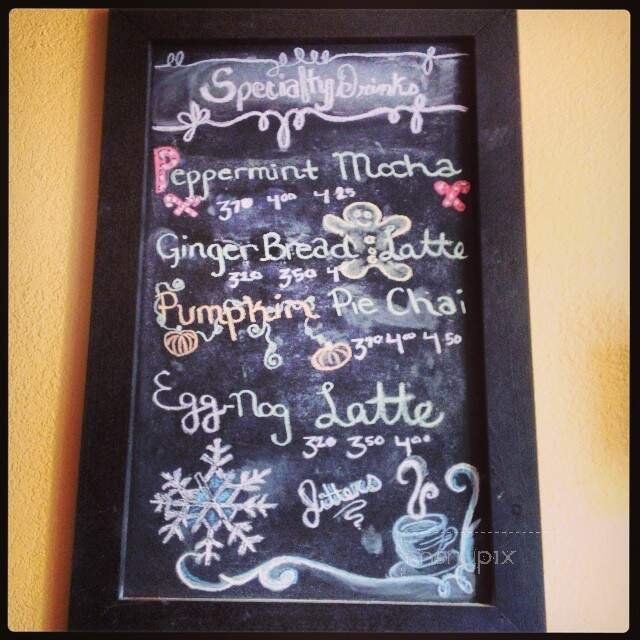 Specialty Drinks
Peppermint Mocha
3.70 4.00 4.25
GingerBread Latte
3.20 3.50 4
Pumpkin Pie Chai
4.00 4.50
Egg-Nog Latte
3.20 3.50 4.00
Jitters
menupix